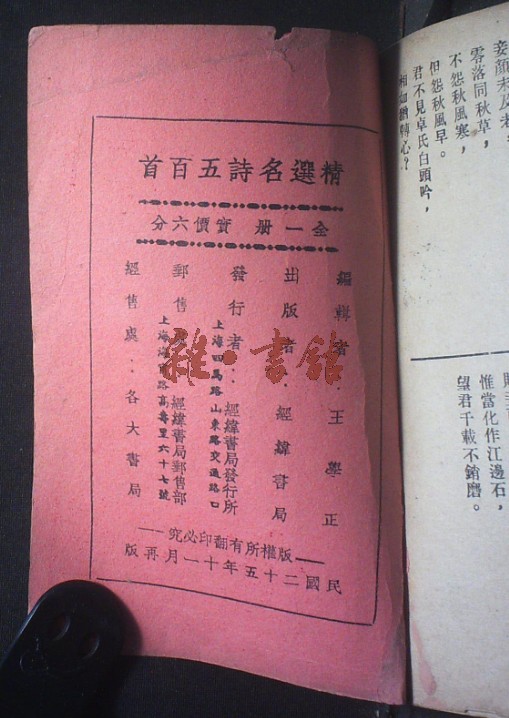 精選名詩五百首
全一册 實價六分
編輯者．王學正
出版者．經緯書局
發行者．經緯書局發行所
上海四馬路山東路交通路口
郵售處．經緯書局郵售部
高壽里六十七號
經售處．．各大書局
版權所有翻印必究
民國二十五年十一月再版
雜．書館
妾顏未及
零落同秋草，
不怨秋風寒，
但怨秋風早。
君不見卓氏白頭吟，
惟當化作江邊石，
望君千載不銷磨。